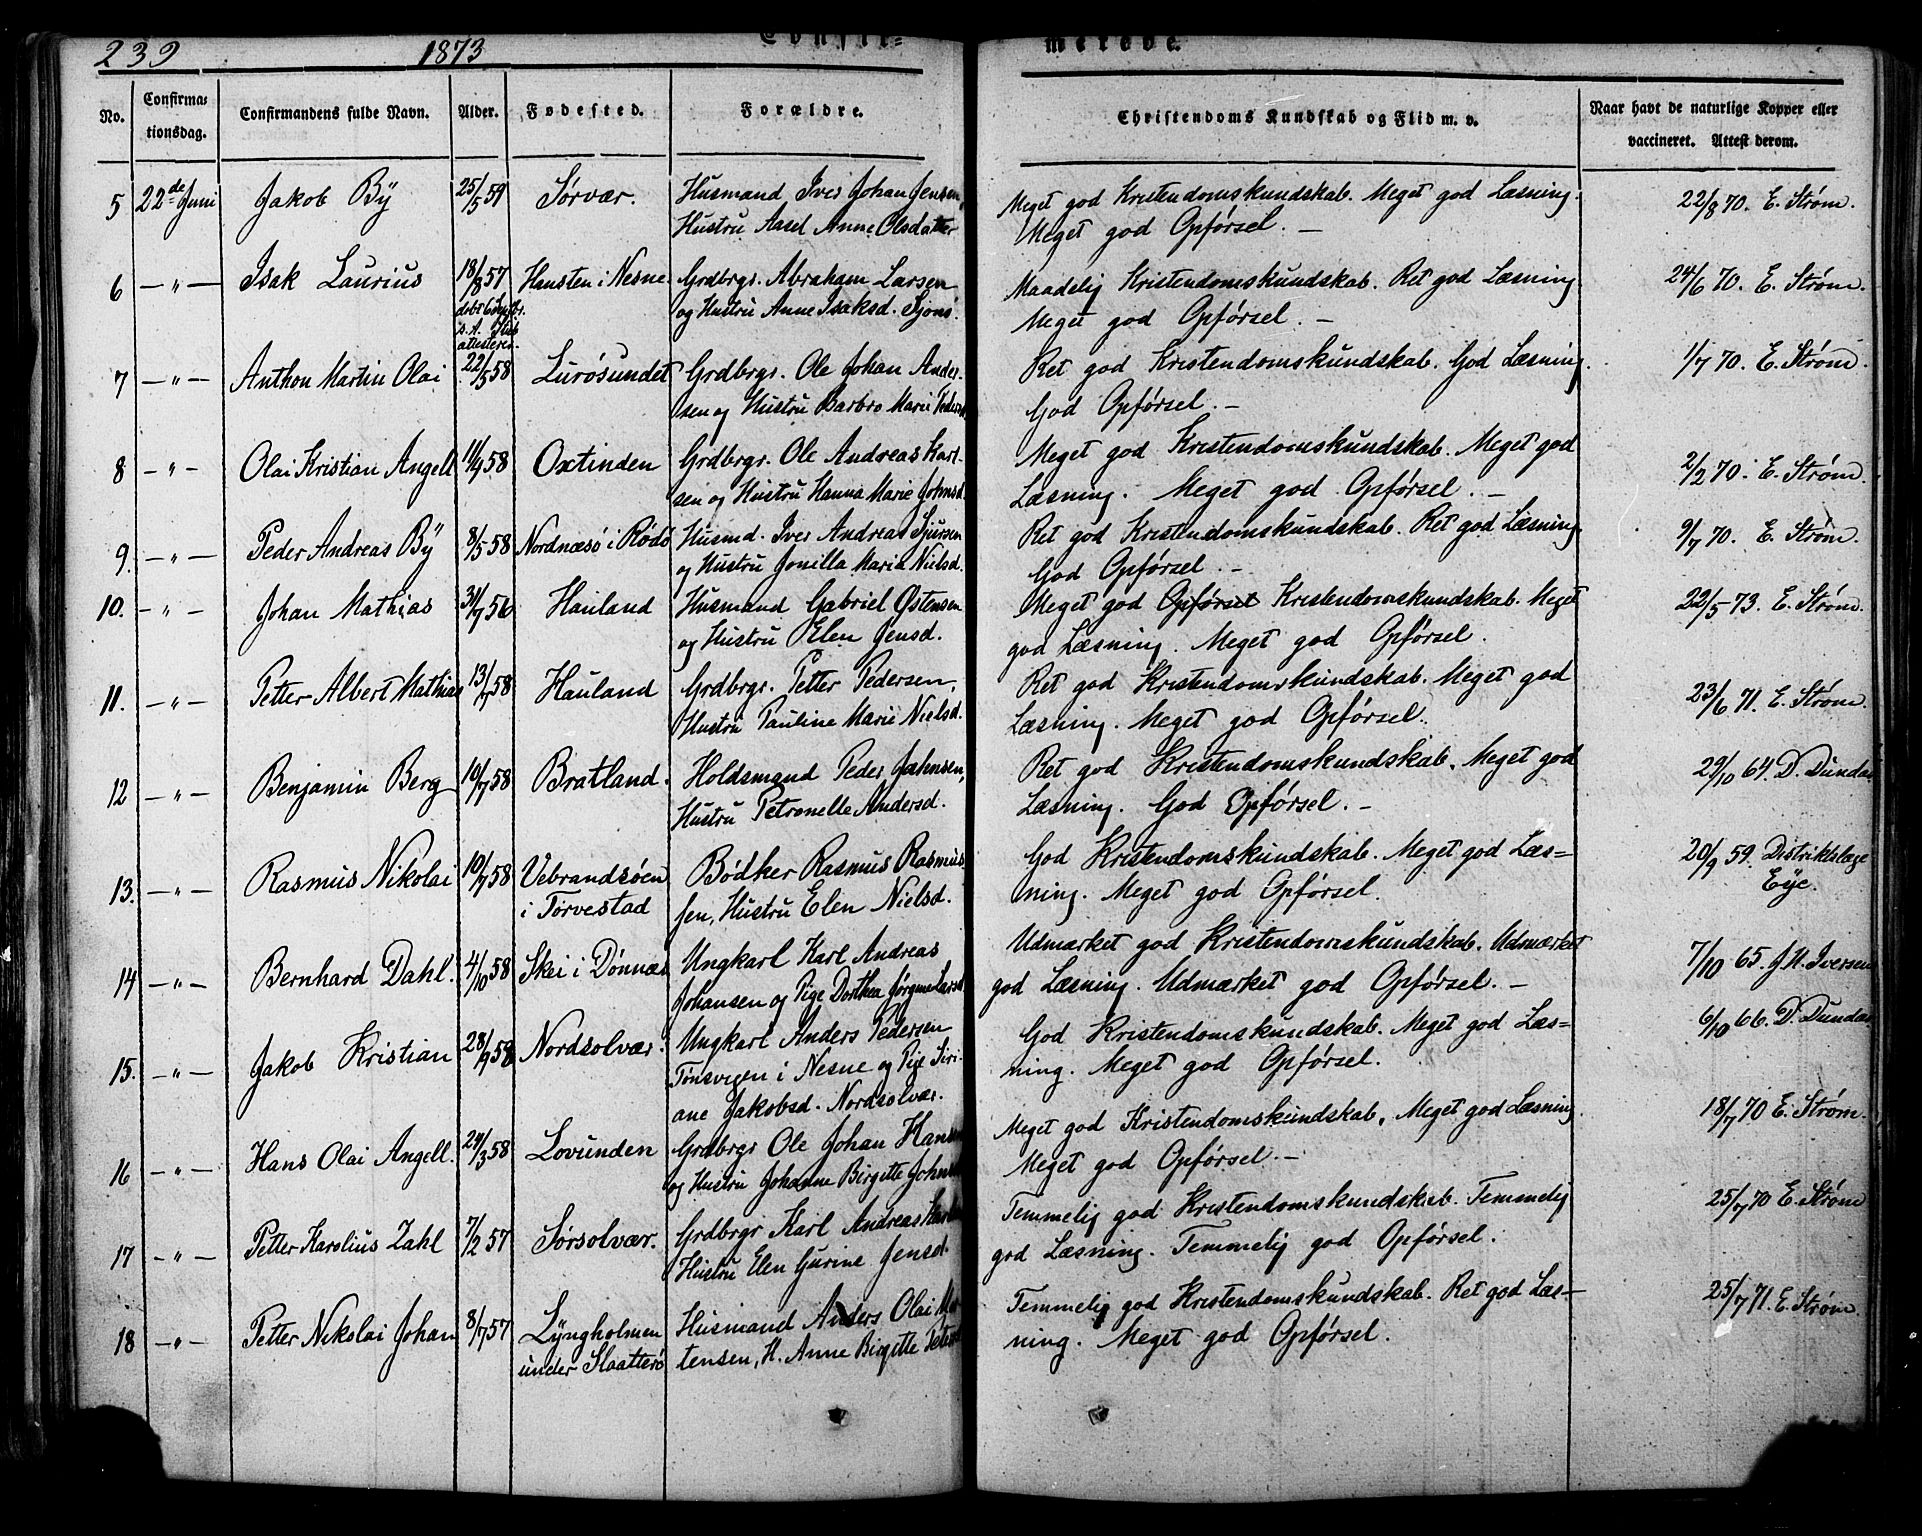 239 1873 Confir= merede.
No. Confirmationsdag. Confirmandens fulde Navn. Alder. Fødested. Forældre. Christendoms Kundskab og Flid m. v. Naar havt de naturlige Kopper eller vaccineret. Attest derom.
5 22de Juni Jakob Bÿ 25/5 59 Sørvær. Husmand Iver Johan Jensen, Meget god Kristendomskundskab. Meget god Læsning. 22/8 70. E. Strøm.
Hustru Aasel Anne Olsdatter Meget god Opførsel. —
6 — " — Isak Laurius 18/8 57 Hansten i Nesne. Grdbrgr. Abraham Larsen Maadelig Kristendomskundskab. Ret god Læsning 24/6 70. E. Strøm.
og Hustru Anne Isaksd. Sjons. Meget god Opførsel. —
attesterer.
7 — " — Anthon Martin Olai 22/5 58 Lurøsundet Grdbrgr. Ole Johan Ander- Ret god Kristendomskundskab. God Læsning. 1/7 70. E. Strøm.
sen og Hustru Barbro Marie Pedersd. God Opførsel. —
8 — " — Olai Kristian Angell 11/9 58 Oxtinden Grdbrgr. Ole Andreas Karl- Meget god Kristendomskundskab. Meget god 2/2 70. E. Strøm.
sen og Hustru Hanna Marie Johnsd. Læsning. Meget god Opførsel. —
9. — " — Peder Andreas Bÿ 8/5 58 Nordnæsø i Rødø Husmd. Iver Andreas Sjursen Ret god Kristendomskundskab. Ret god Læsning 9/7 70. E. Strøm.
og Hustru Jonilla Maria Nielsd. God Opførsel. —
10. — " — Johan Mathias 31/7 56 Hauland Husmand Gabriel Østensen Meget god Opførsel Kristendomskundskab. Meget 22/5 73. E. Strøm.
og Hustru Elen Jensd. god Læsning. Meget god Opførsel.
11. — " — Petter Albert Mathias 13/7 58 Hauland Grdbrgr. Petter Pedersen, Ret god Kristendomskundskab. Meget god 23/6 71. E. Strøm.
Hustru Pauline Marie Nielsd. Læsning. Meget god Opførsel.
12 — " — Benjamin Berg 10/7 58 Bratland. Holdsmand Peder Johnsen, Ret god Kristendomskundskab. Meget god 29/10 64. D. Dundas
Hustru Petronelle Andersd. Læsning. God Opførsel. —
13. — " — Rasmus Nikolai 10/7 58 Vebrandsøen Bødker Rasmus Rasmus God Kristendomskundskab. Meget god Læs= 20/9 59. Distriktslæge
i Torvestad sen, Hustru Elen Nielsd. ning. Meget god Opførsel. Eye.
14 — " — Bernhard Dahl. 4/10 58 Skei i Dønnæs Ungkarl Karl Andreas Udmærket god Kristendomskundskab. Udmærket 7/10 65. J. H. Iversen
Johansen og Pige Dorthea Jørgine Larsd. god Læsning. Udmærket god Opførsel. —
15. — " — Jakob Kristian 28/9 58 Nordsolvær. Ungkarl Anders Pedersen God Kristendomskundskab. Meget god Læs= 6/10 66. D. Dundas
Tonsvigen i Nesne og Pige Siri- ning. Meget god Opførsel.
ane Jakobsd. Nordsolvær.
16 — " — Hans Olai Angell. 24/3 58 Lovunden Grdbrgr Ole Johan Hansen Meget god Kristendomskundskab. Meget god Læsning. 18/7 70 E. Strøm.
og Hustru Johanne Birgitte Johns Meget god Opførsel. —
17 — " — Petter Karolius Zahl 7/2 57 Sørsolvær. Grdbrgr Karl Andreas Temmelig god Kristendomskundskab. Temmelig 25/7 70 E. Strøm
Hustru Elen Gurine Jensd. god Læsning. Temmelig god Opførsel.
18 — " — Petter Nikolai Johan 8/7 57 Lÿngholmen Husmand Anders Olai Temmelig god Kristendomskundskab. Ret god Læs— 25/7 71. E. Strøm.
under Slaatterø tensen, H. Anne Birgitte Peters ning. Meget god Opførsel.